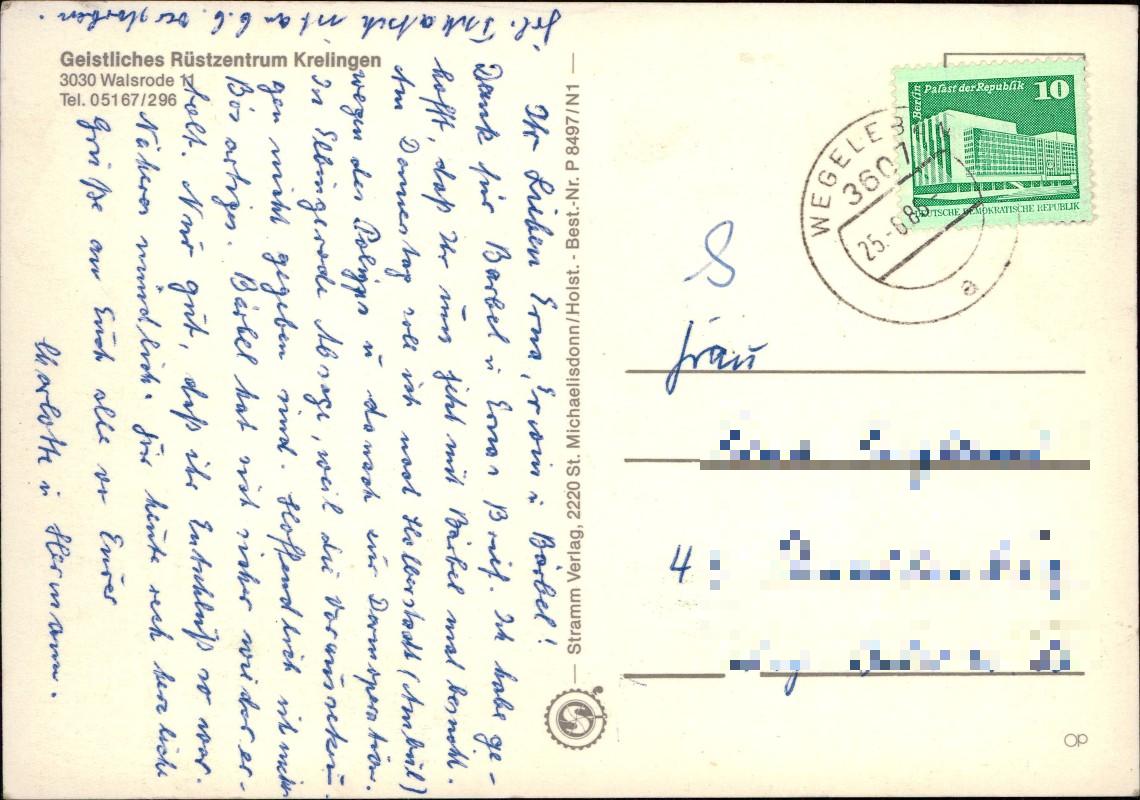 Geistliches Rüstzentrum Krelingen
3030 Walsrode 11
Tel. 05167/296
Ihr Lieben Erna, Erwin u Bärbel!
Dank für Bärbel u Ernas Brief. Ich habe ge-
hofft, daß Ihr uns jetzt mit Bärbel mal besucht.
Am Donnerstag soll ich nach Halberstadt (Ambul)
wegen der Polypen u danach zur Darmoperation.
In Elbingerode Absage, weil die Voraussetzun-
gen nicht gegeben sind. Hoffentlich ist nichts
Bös artiges. Bärbel hat sich sicher wieder er-
holt. Nur gut, daß ihr Entschluß so war.
Näheres mündlich. Für heute recht herzliche
Grüße an Euch alle von Eurer
Charlotte u Hermann.
Frl. ist am 6.6. verstorben.
Stramm Verlag, 2220 St. Michaelisdonn/Holst. - Best.-Nr. P 8497/N1
Berlin
Palast der Republik
10
DEUTSCHE DEMOKRATISCHE REPUBLIK
WEGELEBEN
3607
25.-6.86-
a
S
Frau
4
OP